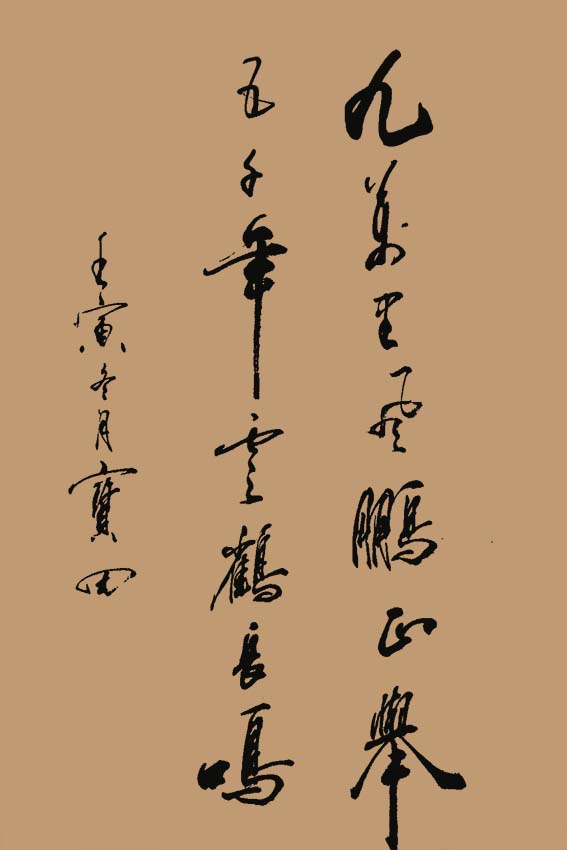 九萬里風鵬正舉
五千年雲鶴長鳴
壬寅冬月寶田